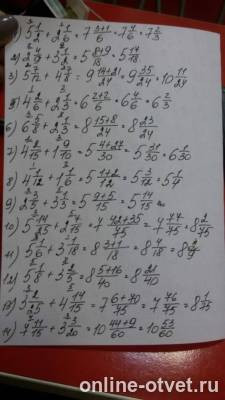 1) 5 1/2 + 2 1/6 = 7 3+1/6 = 7 4/6 = 7 2/3
2) 2 4/9 + 3 1/2 = 5 8+9/18 = 5 17/18
3) 5 7/12 + 4 7/8 = 9 14+21/24 = 9 35/24 = 10 11/24
5) 4 2/6 + 2 1/3 = 6 2+2/6 = 6 4/6 = 6 2/3
6) 6 5/8 + 2 1/3 = 8 15+8/24 = 8 23/24
7) 4 2/15 + 1 9/10 = 5 4+27/30 = 5 31/30 = 6 1/30
8) 4 1/12 + 1 1/6 = 5 1+2/12 = 5 3/12 = 5 1/4
9) = 5 9+5/15 = 5 14/15
10) 5 14/25 + 2 7/15 = 7 42+35/75 = 7 77/75 = 8 2/75
11) 5 1/6 + 3 1/18 = 8 3+1/18 = 8 4/18 = 8 2/9
12) 5 1/8 + 3 2/5 = 8 5+16/40 = 8 21/40
13) 3 2/25 + 4 14/15 = 7 6+70/75 = 7 76/75 = 8 1/75
14) 7 11/15 + 3 3/20 = 10 44+9/60 = 10 53/60
online-otvet.ru